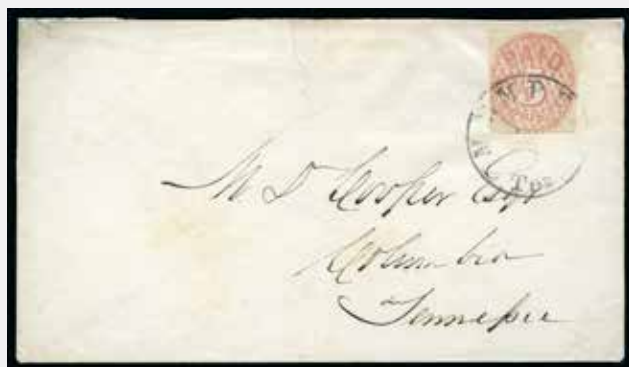 PAID
5
M D Cooper Esqr
Columbia
Tennessee